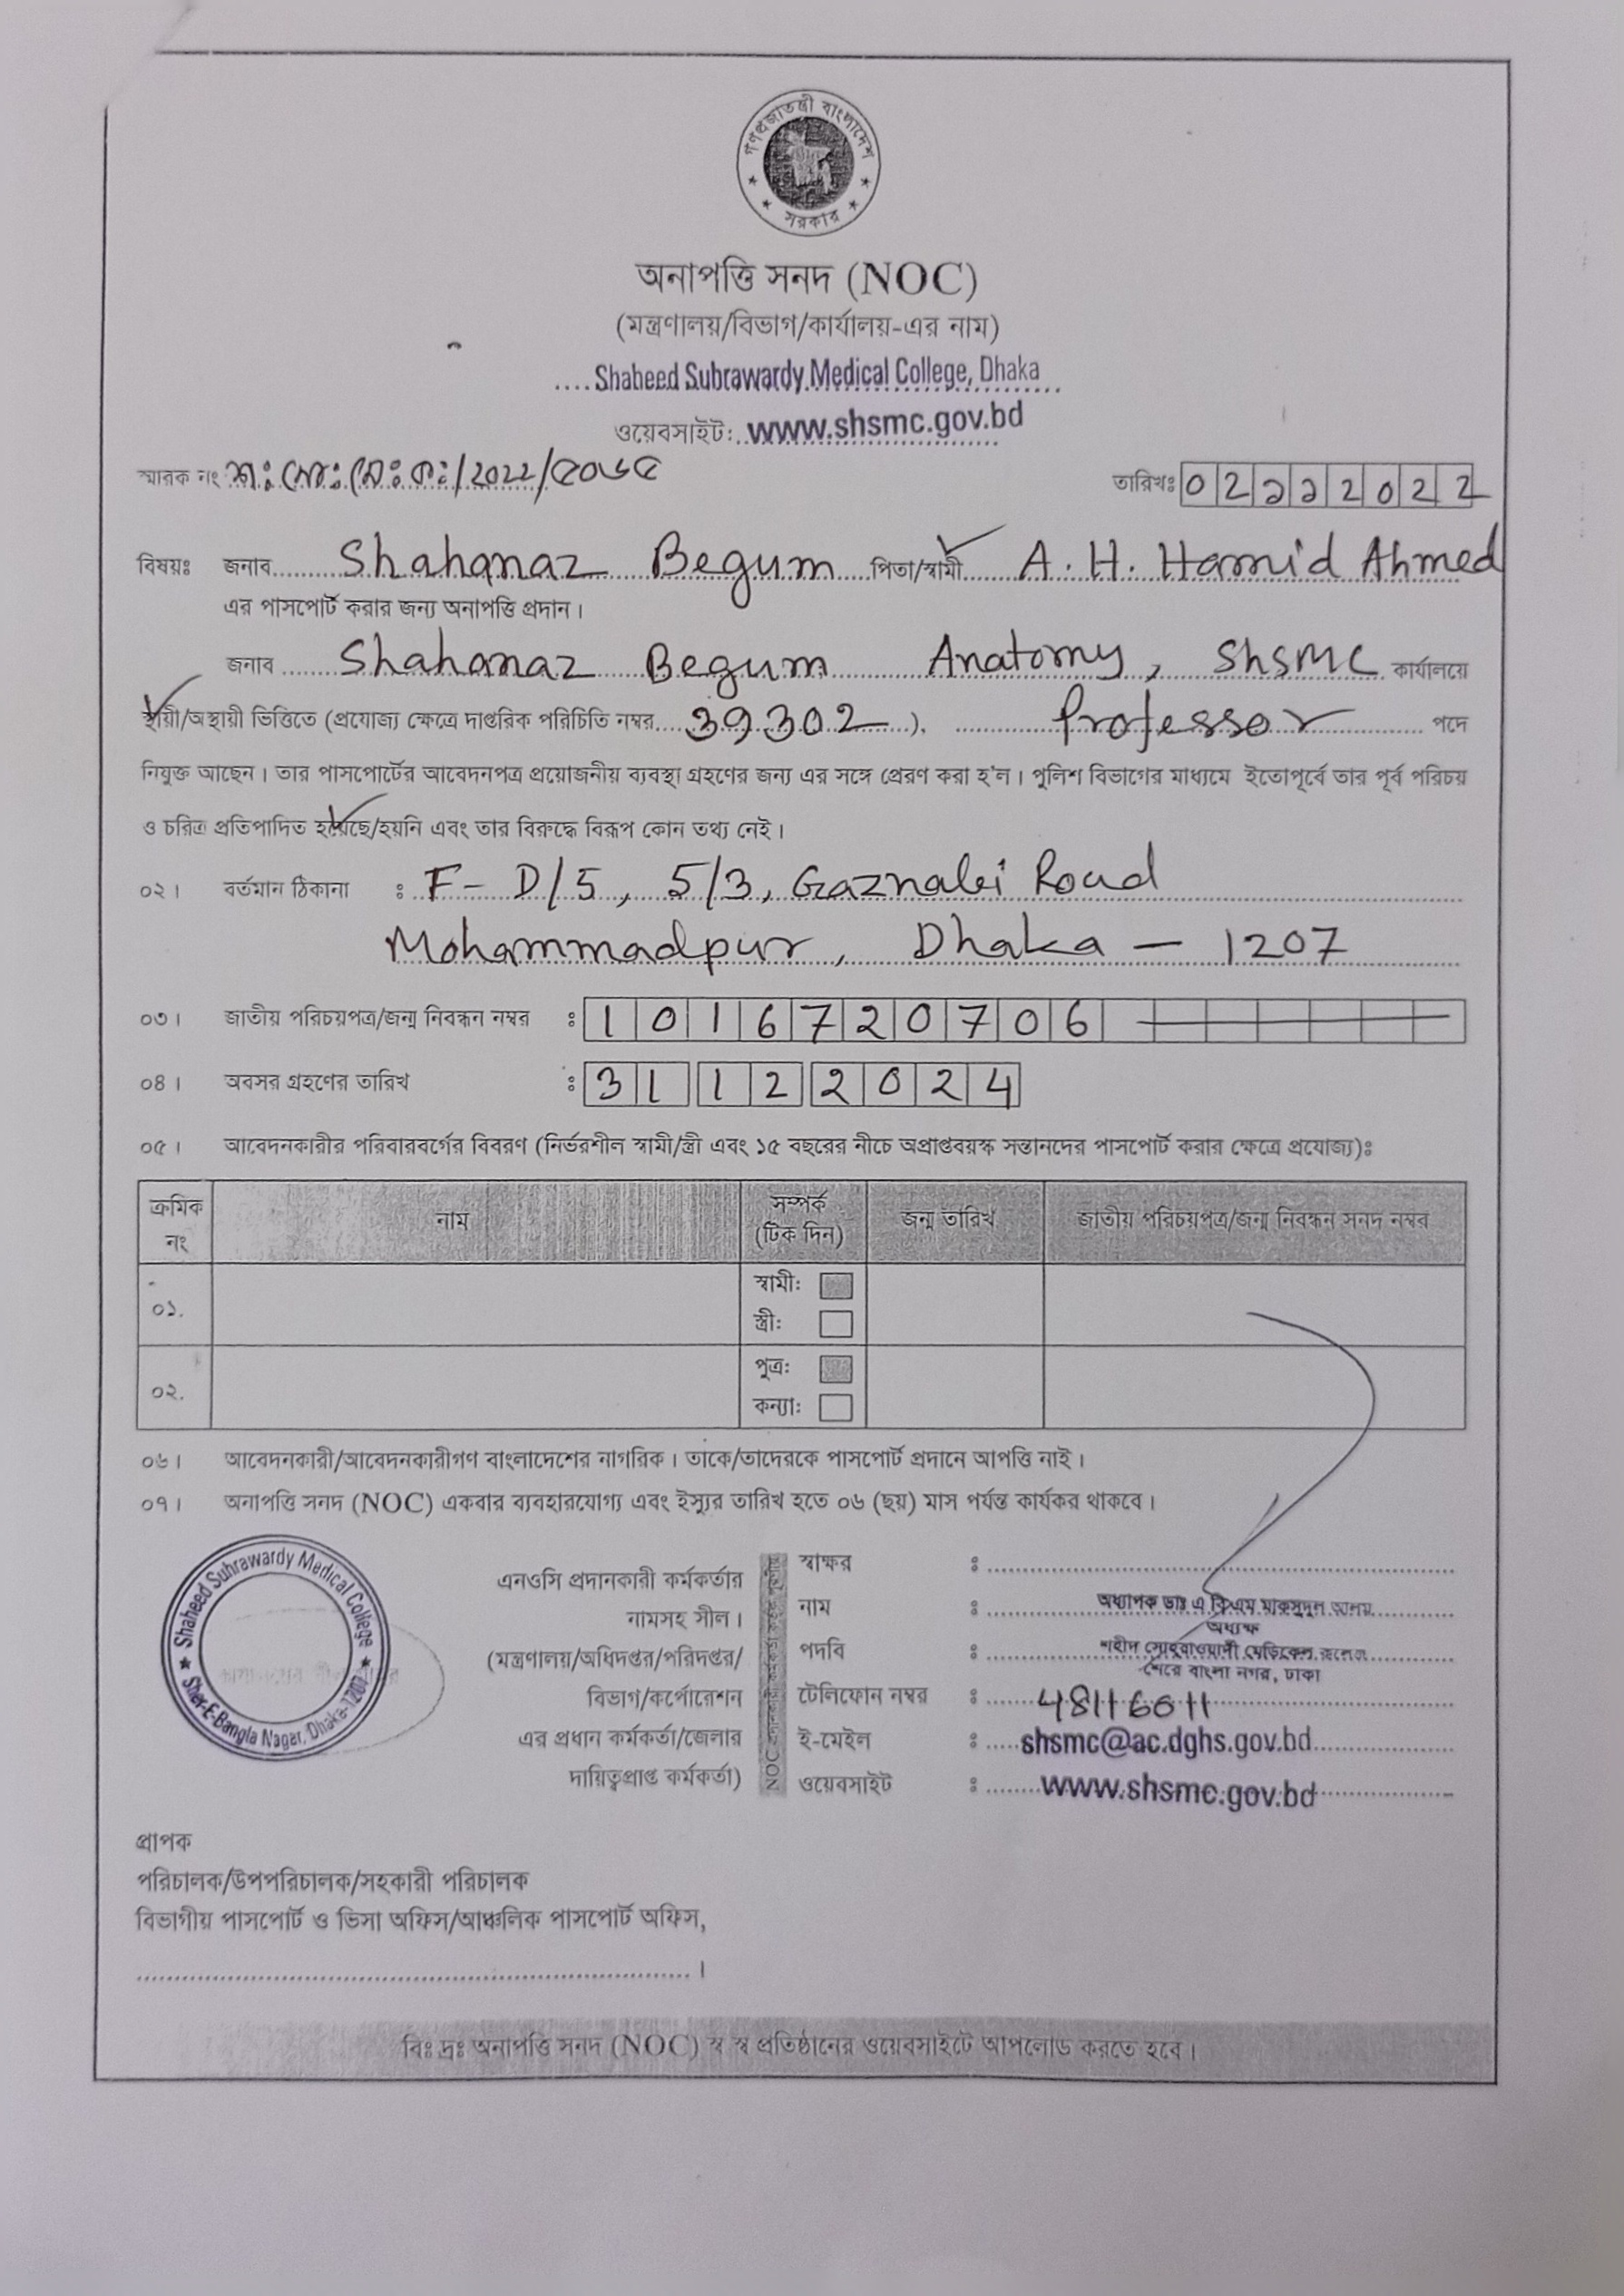 গণপ্রজাতন্ত্রী বাংলাদেশ
সরকার
অনাপত্তি সনদ (NOC)
(মন্ত্রণালয়/বিভাগ/কার্যালয়-এর নাম)
Shaheed Suhrawardy Medical College, Dhaka
ওয়েবসাইট: www.shsmc.gov.bd
স্মারক নং শ: সো: মে: ক: /2022/৫০৬৫ তারিখঃ 02১১2022
বিষয়ঃ জনাব Shahanaz Begum পিতা/স্বামী A. H. Hamid Ahmed
এর পাসপোর্ট করার জন্য অনাপত্তি প্রদান।
জনাব Shahanaz Begum Anatomy, ShSMC কার্যালয়ে
স্থায়ী/অস্থায়ী ভিত্তিতে (প্রযোজ্য ক্ষেত্রে দাপ্তরিক পরিচিতি নম্বর 39302), Professor পদে
নিযুক্ত আছেন। তার পাসপোর্টের আবেদনপত্র প্রয়োজনীয় ব্যবস্থা গ্রহণের জন্য এর সঙ্গে প্রেরণ করা হ'ল। পুলিশ বিভাগের মাধ্যমে ইতোপূর্বে তার পূর্ব পরিচয়
ও চরিত্র প্রতিপাদিত হয়েছে/হয়নি এবং তার বিরুদ্ধে বিরূপ কোন তথ্য নেই।
০২। বর্তমান ঠিকানা : F- D/5, 5/3, Gaznabi Road
Mohammadpur, Dhaka - 1207
০৩। জাতীয় পরিচয়পত্র/জন্ম নিবন্ধন নম্বর : 1016720706
০৪। অবসর গ্রহণের তারিখ : 31 12 2024
০৫। আবেদনকারীর পরিবারবর্গের বিবরণ (নির্ভরশীল স্বামী/স্ত্রী এবং ১৫ বছরের নীচে অপ্রাপ্তবয়স্ক সন্তানদের পাসপোর্ট করার ক্ষেত্রে প্রযোজ্য)ঃ
ক্রমিক নং নাম সম্পর্ক (টিক দিন) জন্ম তারিখ জাতীয় পরিচয়পত্র/জন্ম নিবন্ধন সনদ নম্বর
০১. স্বামী:
স্ত্রী:
০২. পুত্র:
কন্যা:
০৬। আবেদনকারী/আবেদনকারীগণ বাংলাদেশের নাগরিক। তাকে/তাদেরকে পাসপোর্ট প্রদানে আপত্তি নাই।
০৭। অনাপত্তি সনদ (NOC) একবার ব্যবহারযোগ্য এবং ইস্যুর তারিখ হতে ০৬ (ছয়) মাস পর্যন্ত কার্যকর থাকবে।
Shaheed Suhrawardy Medical College
Sher-E-Bangla Nagar, Dhaka-1207
এনওসি প্রদানকারী কর্মকর্তার
নামসহ সীল।
(মন্ত্রণালয়/অধিদপ্তর/পরিদপ্তর/
বিভাগ/কর্পোরেশন
এর প্রধান কর্মকর্তা/জেলার
দায়িত্বপ্রাপ্ত কর্মকর্তা)
NOC
স্বাক্ষর :
নাম : অধ্যাপক ডাঃ এ বি এম মাকসুদুল আলম
অধ্যক্ষ
পদবি : শহীদ সোহরাওয়ার্দী মেডিকেল কলেজ
শেরে বাংলা নগর, ঢাকা
টেলিফোন নম্বর : 48116011
ই-মেইল : shsmc@ac.dghs.gov.bd
ওয়েবসাইট : www.shsmc.gov.bd
প্রাপক
পরিচালক/উপপরিচালক/সহকারী পরিচালক
বিভাগীয় পাসপোর্ট ও ভিসা অফিস/আঞ্চলিক পাসপোর্ট অফিস,
।
বিঃ দ্রঃ অনাপত্তি সনদ (NOC) স্ব স্ব প্রতিষ্ঠানের ওয়েবসাইটে আপলোড করতে হবে।